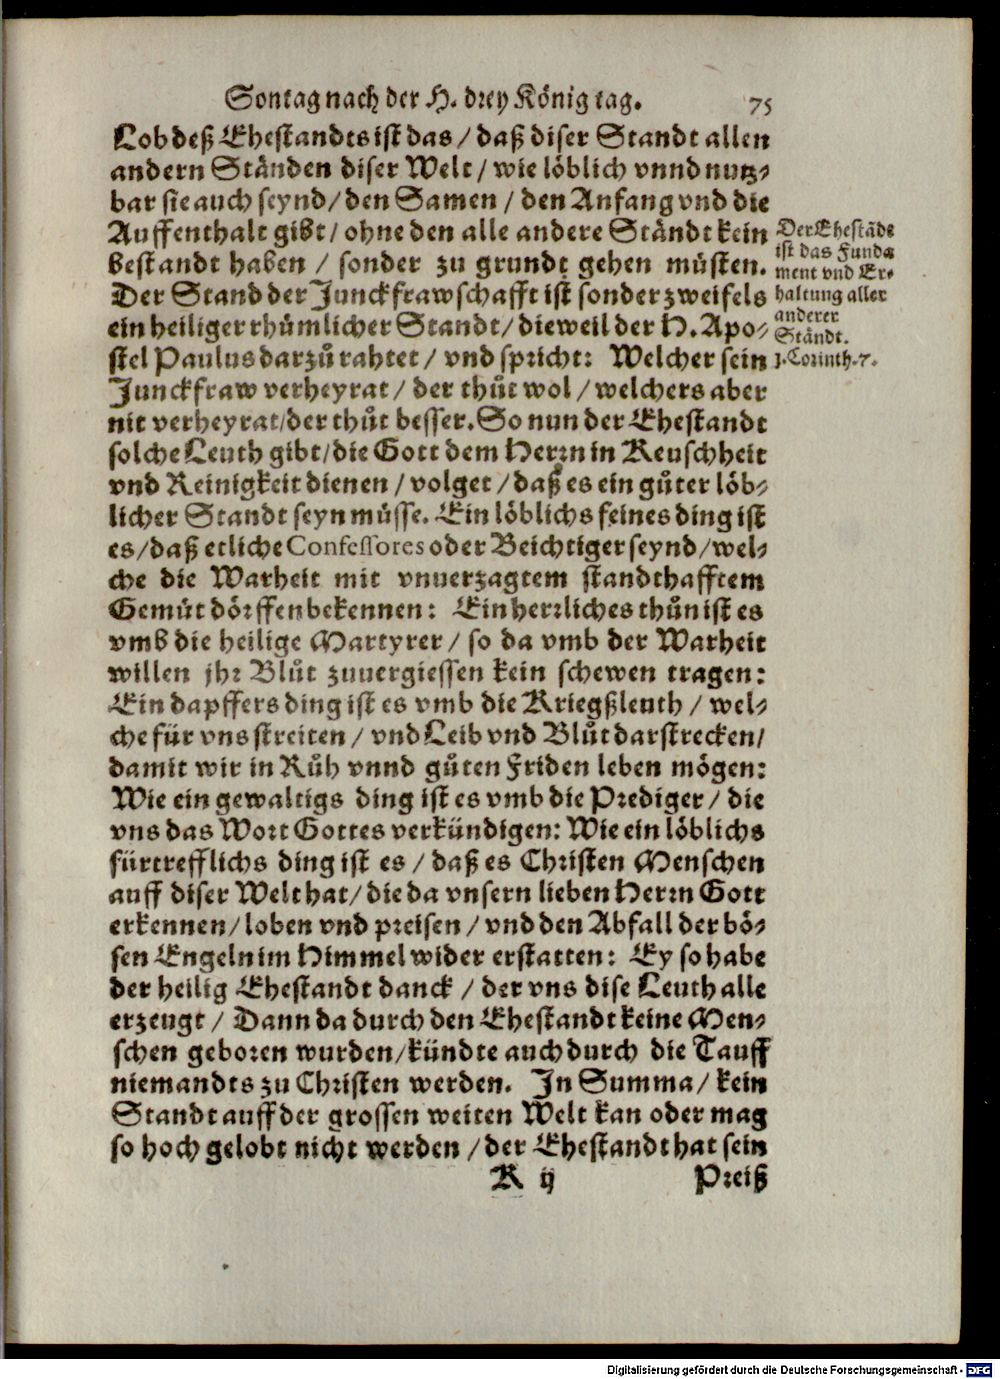 Sontag nach der H. drey König tag. 75
Lob deß Ehestandts ist das / daß diser Standt allen
andern Ständen diser Welt / wie löblich vnnd nutz-
bar sie auch seynd / den Samen / den Anfang vnd die
Auffenthalt gibt / ohne den alle andere Ständt kein
bestandt haben / sonder zu grundt gehen müsten.
Der Stand der Junckfrawschafft ist sonder zweifels
ein heiliger rhümlicher Standt / dieweil der H. Apo-
stel Paulus darzů rahtet / vnd spricht: Welcher sein
Junckfraw verheyrat / der thůt wol / welchers aber
nit verheyrat / der thůt besser. So nun der Ehestandt
solche Leuth gibt / die Gott dem Herrn in Keuschheit
vnd Reinigkeit dienen / volget / daß es ein gůter löb-
licher Standt seyn müsse. Ein löblichs feines ding ist
es / daß etliche Confessores oder Beichtiger seynd / wel-
che die Warheit mit vnuerzagtem standthafftem
Gemüt dörffen bekennen: Ein herrliches thůn ist es
vmb die heilige Martyrer / so da vmb der Warheit
willen jhr Blůt zuuergiessen kein schewen tragen:
Ein dapffers ding ist es vmb die Kriegßleuth / wel-
che für vns streiten / vnd Leib vnd Blůt darstrecken /
damit wir in Růh vnnd gůten Friden leben mögen:
Wie ein gewaltigs ding ist es vmb die Prediger / die
vns das Wort Gottes verkündigen: Wie ein löblichs
fürtrefflichs ding ist es / daß es Christen Menschen
auff diser Welt hat / die da vnsern lieben Herrn Gott
erkennen / loben vnd preisen / vnd den Abfall der bö-
sen Engeln im Himmel wider erstatten: Ey so habe
der heilig Ehestandt danck / der vns dise Leuth alle
erzeugt / Dann da durch den Ehestandt keine Men-
schen geboren wurden / kündte auch durch die Tauff
niemandts zu Christen werden. In Summa / kein
Standt auff der grossen weiten Welt kan oder mag
so hoch gelobt nicht werden / der Ehestandt hat sein
K ij Preiß
Der Ehestãdt
ist das Funda
ment vnd Er-
haltung aller
anderer
Ständt.
1. Corinth. 7.
Digitalisierung gefördert durch die Deutsche Forschungsgemeinschaft - DFG